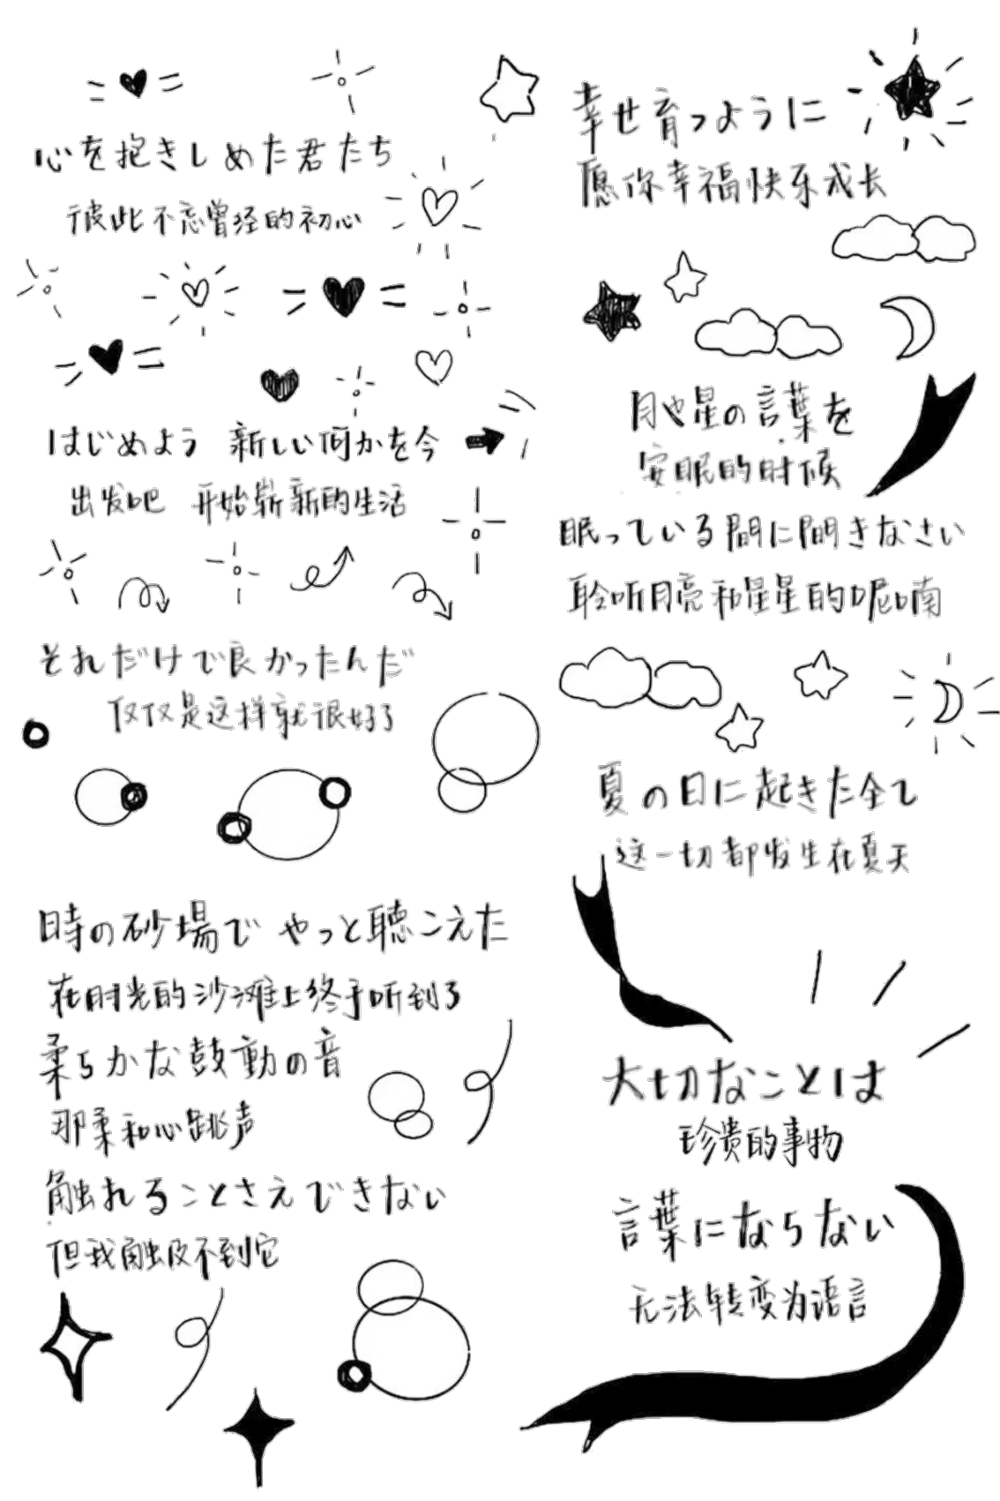 心を抱きしめた君たち
彼此不忘曾经的初心
はじめよう 新しい何かを今
出发吧 开始崭新的生活
それだけで良かったんだ
仅仅是这样就很好了
時の砂場で やっと聴こえた
在时光的沙滩上终于听到了
柔らかな鼓動の音
那柔和心跳声
触れることさえできない
但我触及不到它
幸せ育つように
愿你幸福快乐成长
月や星の言葉を
安眠的时候
眠っている間に聞きなさい
聆听月亮和星星的呢喃
夏の日に起きた全て
这一切都发生在夏天
大切なことは
珍贵的事物
言葉にならない
无法转变为语言